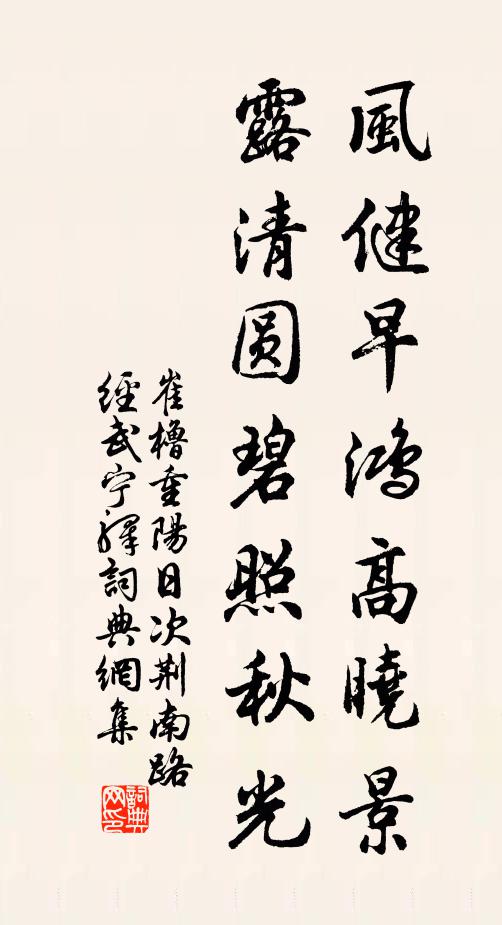 風健早鴻高曉景
露清圓碧照秋光
崔櫓重陽日次荆南路
經武宁驛詞典網集
詞典网印